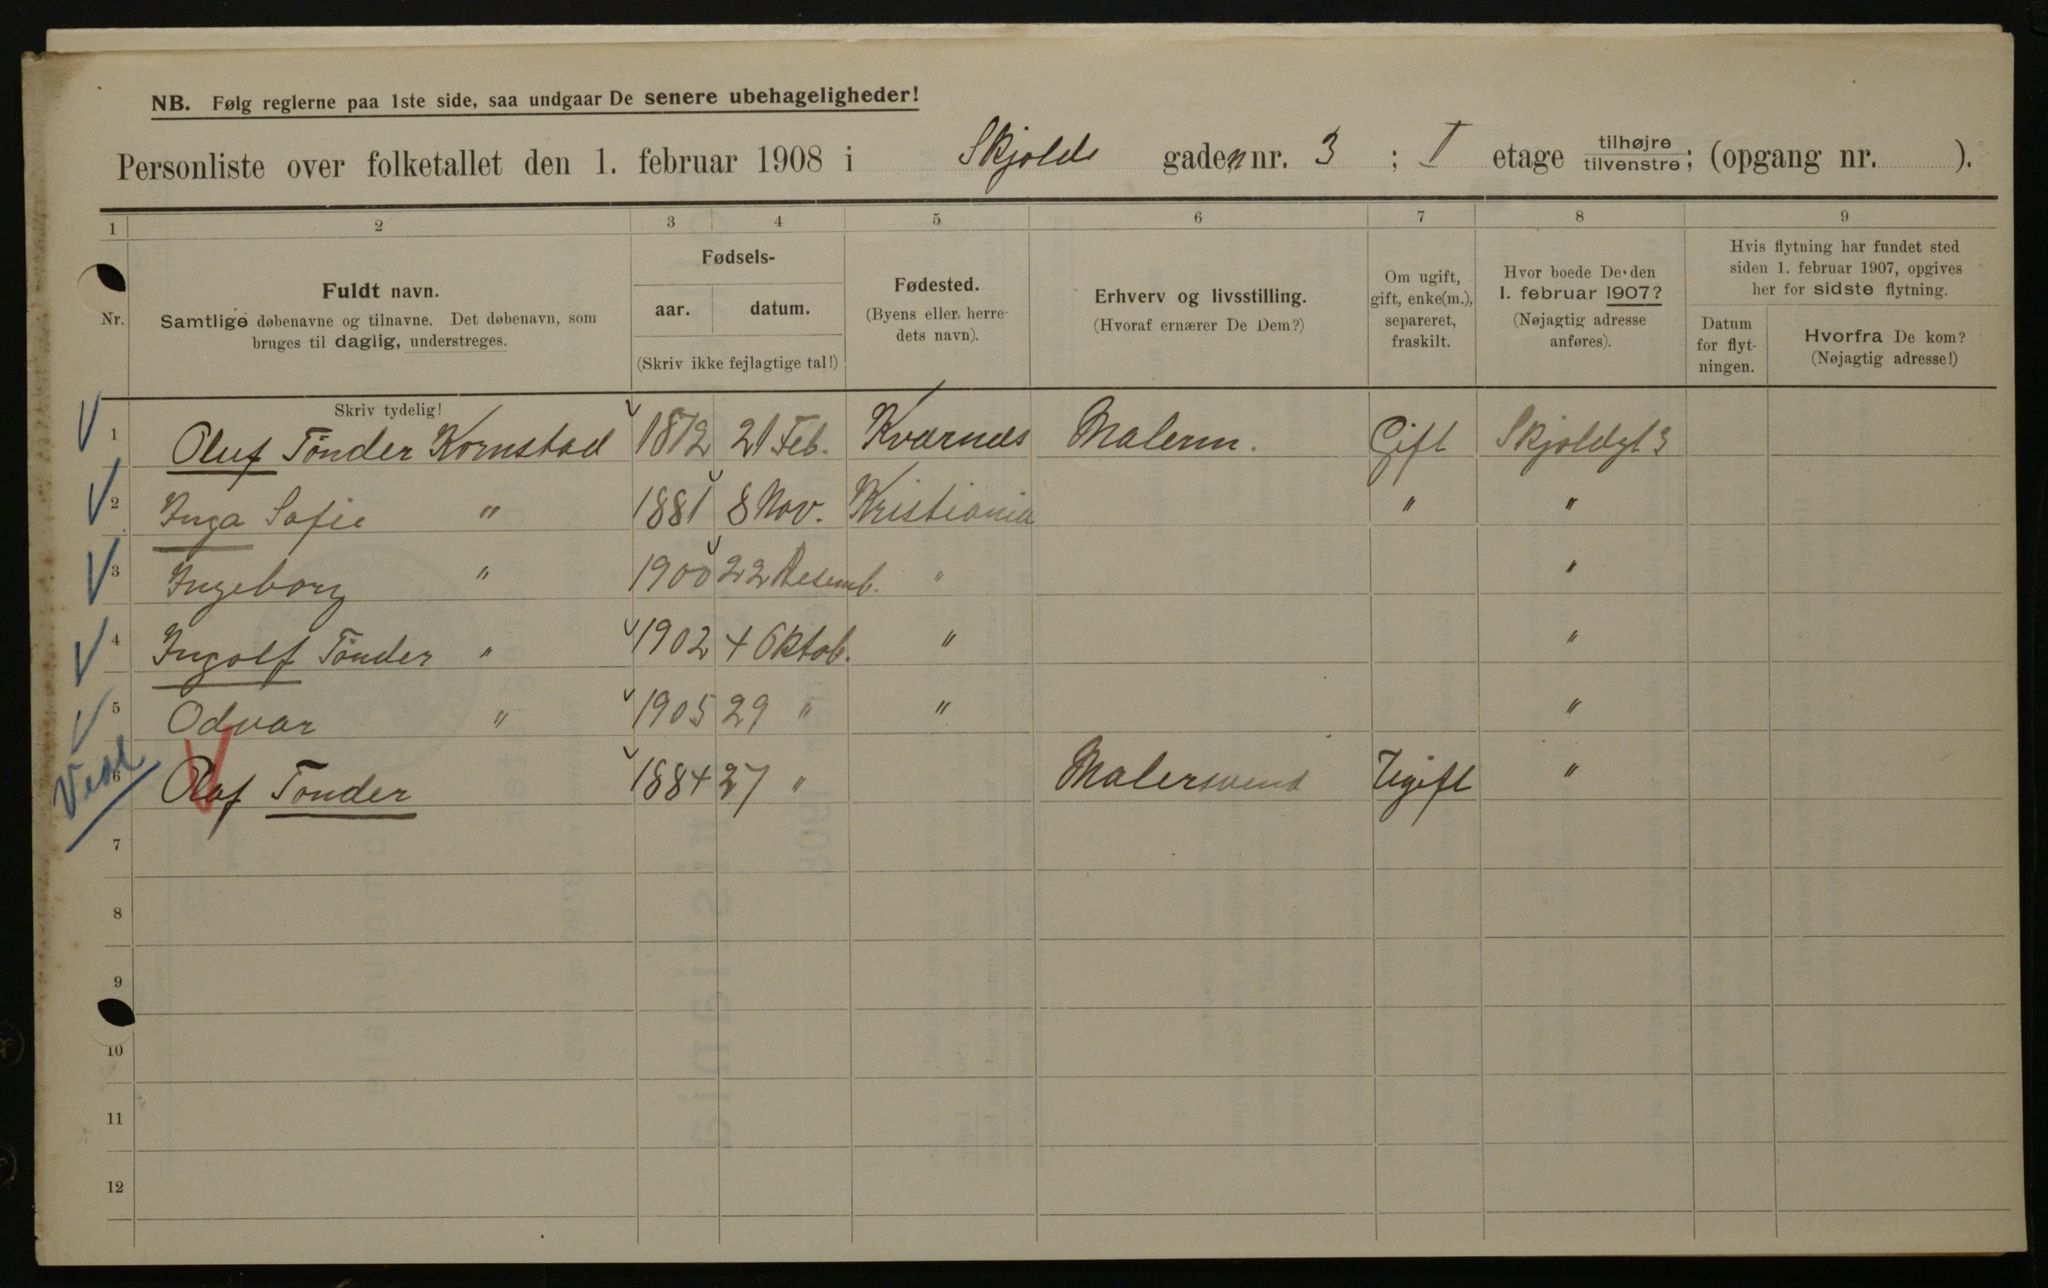 NB. Følg reglerne paa 1ste side, saa undgaar De senere ubehageligheder!
Personliste over folketallet den 1. februar 1908 i Skjolds gaden nr. 3 ; I etage tilhøjre/tilvenstre; (opgang nr. ).
1 2 3 4 5 6 7 8 9
Nr. Fuldt navn. Samtlige døbenavne og tilnavne. Det døbenavn, som bruges til daglig, understreges.
Fødsels- aar. datum. (Skriv ikke fejlagtige tal!)
Fødested. (Byens eller herredets navn).
Erhverv og livsstilling. (Hvoraf ernærer De Dem?)
Om ugift, gift, enke(m.), separeret, fraskilt.
Hvor boede De den 1. februar 1907? (Nøjagtig adresse anføres).
Hvis flytning har fundet sted siden 1. februar 1907, opgives her for sidste flytning.
Datum for flytningen. Hvorfra De kom? (Nøjagtig adresse!)
Skriv tydelig!
1 Oluf Tønder Kornstad 1872 21 Feb. Kværnes Malerm. Gift Skjoldgt 3
2 Inga Sofie " 1881 8 Nov. Kristiania " "
3 Ingeborg " 1900 22 Desemb. " "
4 Ingolf Tønder " 1902 4 Oktob. " "
5 Odvar " 1905 29 " " "
6 Olaf Tønder 1884 27 " Malersvend Ugift "
7
8
9
10
11
12